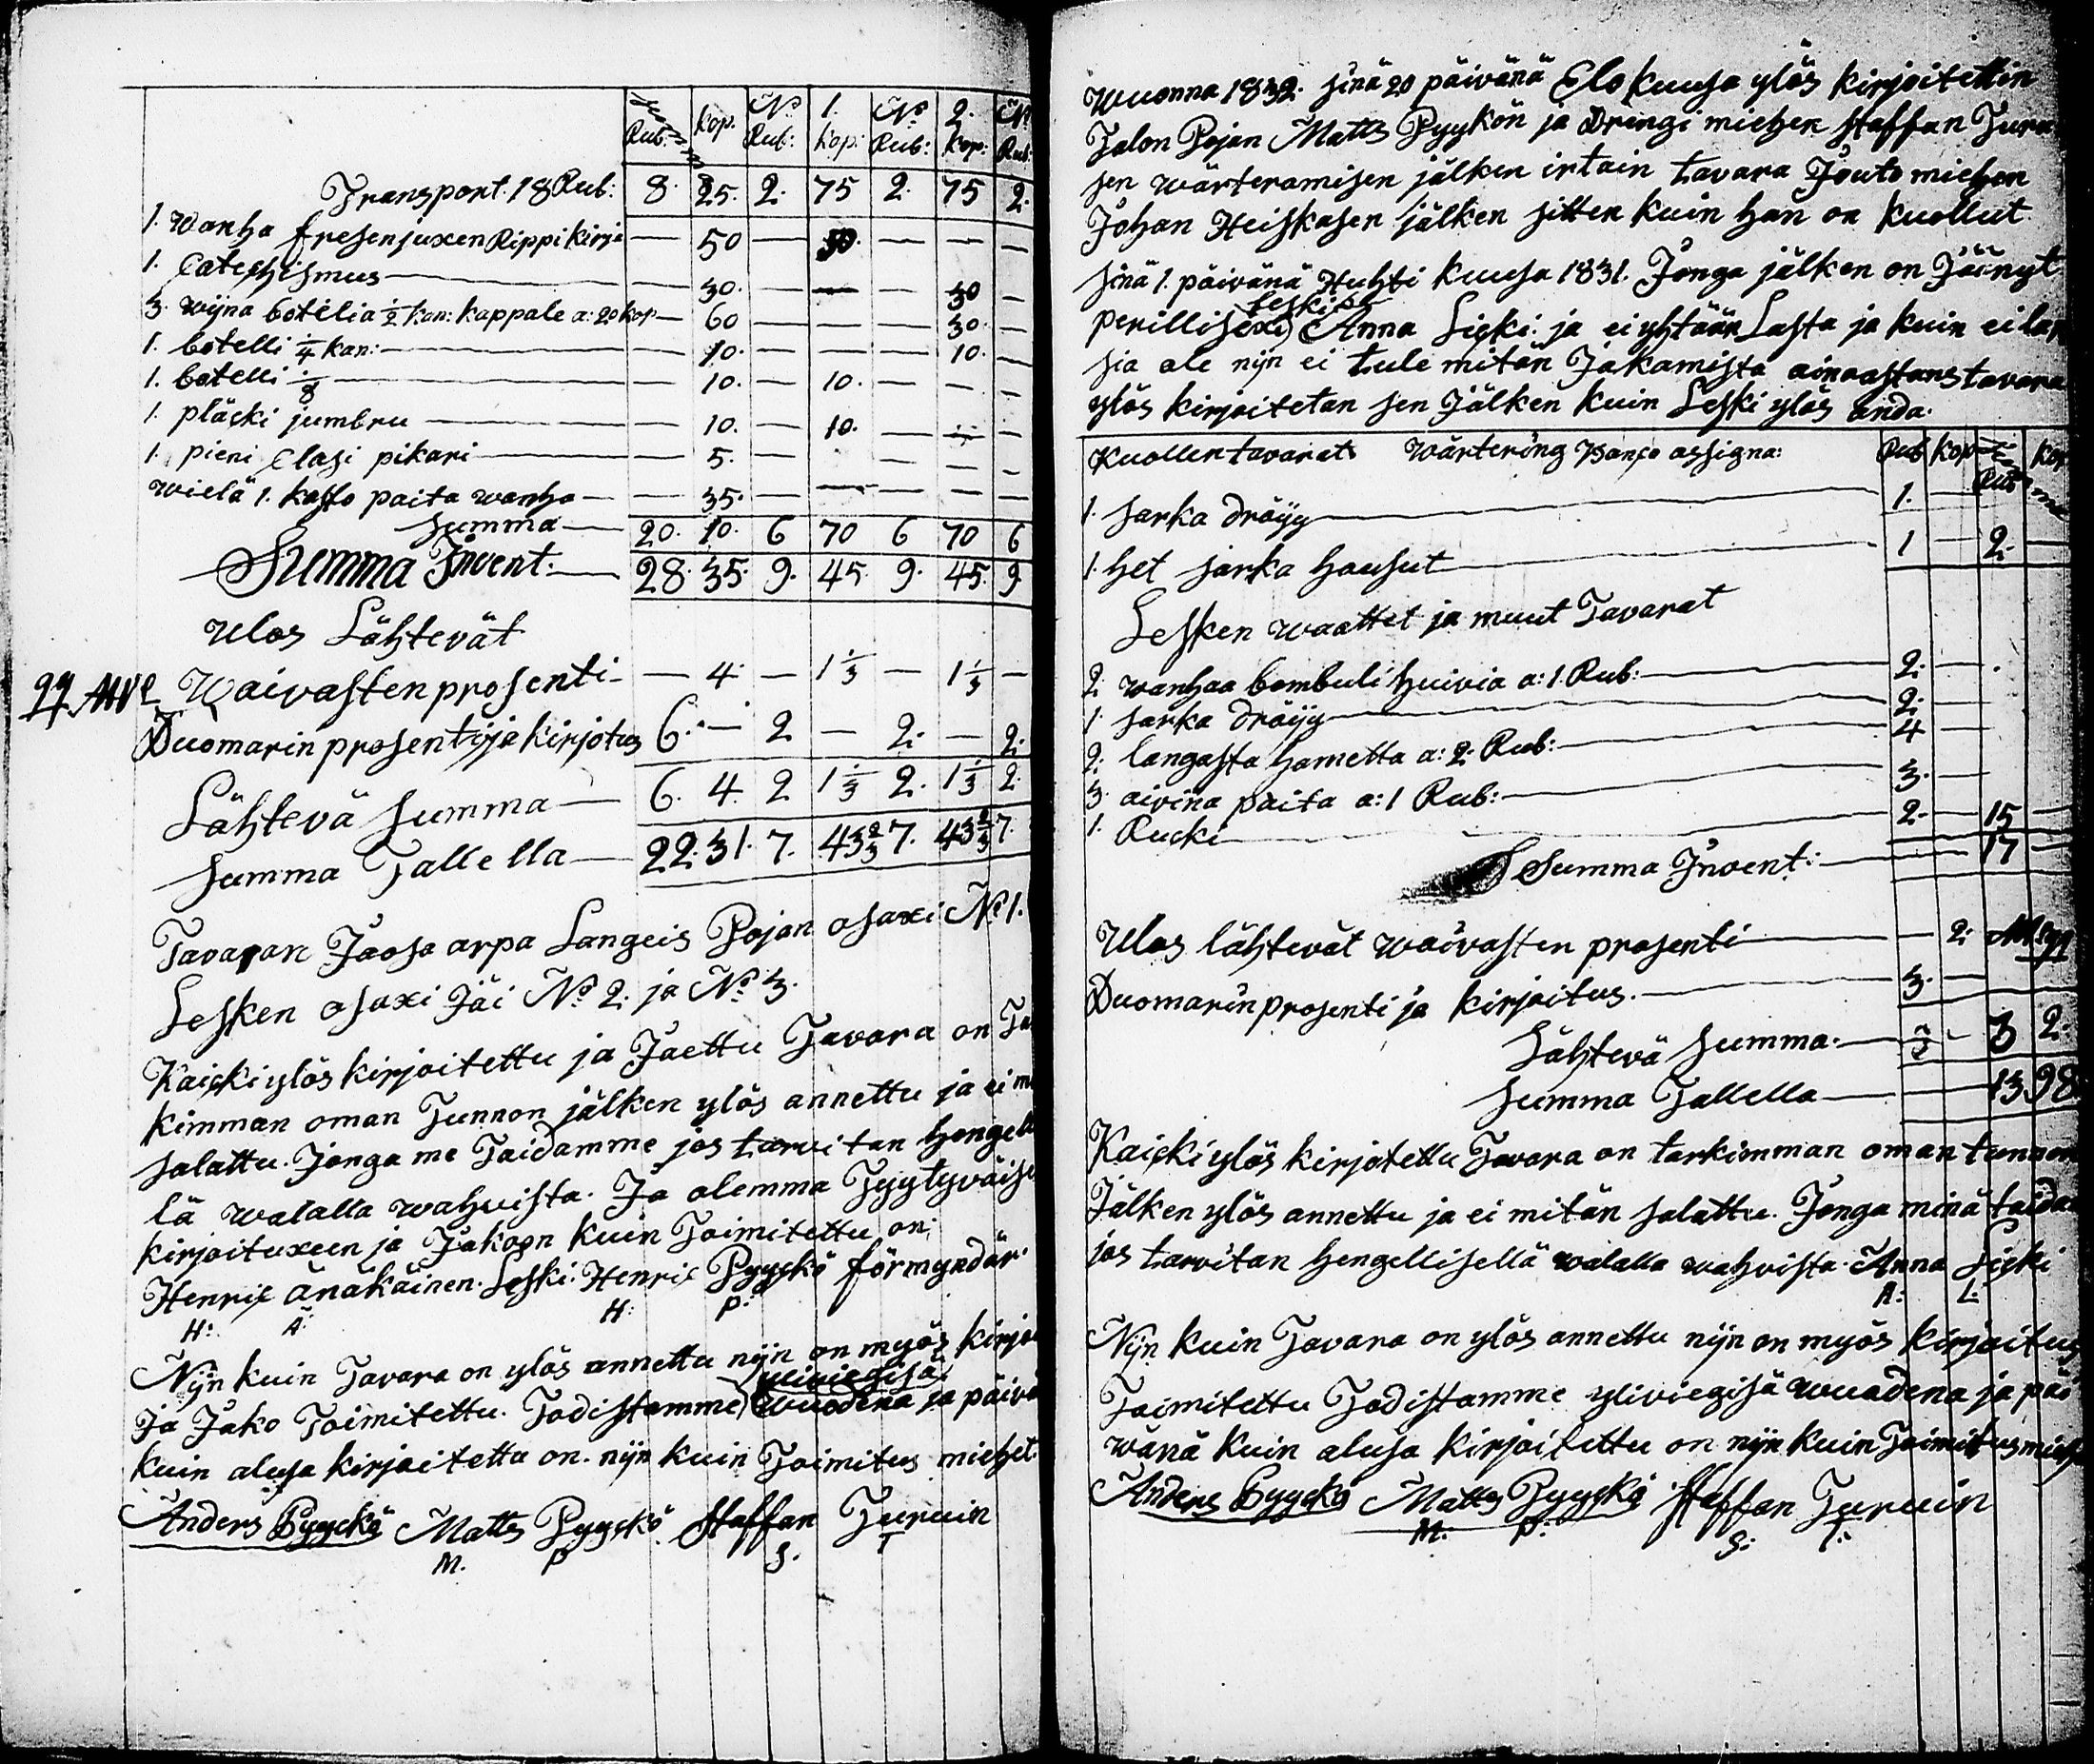 Summa No 1. No 2. No
Rub: kop. Rub: kop: Rub: kop: Rub:
Transport. 18 Rub: 8. 25. 2. 75 2. 75 2.
1. Wanha fresenjuxen Rippi kirja — 50 — 50. — — —
1. Catechismus — — 30. — — — 30 —
3. wijna botelia 1/2 kan: kappale a: 20 kop — — 60 — — — 30. —
1. botelli 1/4 kan: — — 10. — — — 10. —
1. botelli 1/8 — — 10. — 10. — — —
1. pläcki jumbru — — 10. — 10. — —
1. pieni Clasi pikari — — 5. — — — —
wielä 1. kasto paita wanha — — 35. — — — — —
Summa — 20. 10. 6 70 6 70 6
Summa Invent. — 28. 35. 9. 45. 9. 45. 9
Ulos Lähtevät
Waivasten prosenti — — 4. — 1 1/3 — 1 1/3 —
Duomarin prosenti ja kirjotus 6. — 2 — 2. — 2.
Lähtevä Summa — 6. 4. 2 1 1/3 2. 1 1/3 2.
Summa Tallella — 22. 31. 7. 43 2/3 7. 43 2/3 7.
Tavaran Jaosa arpa Langeis Pojan osaxi No 1.
Lesken osaxi Jäi No 2. ja No 3.
Kaicki ylös kirjoitettu ja Jaettu Tavara on
kimman oman Tunnon jälken ylös annettu ja ei
salattu. Jonga me Taidamme jos tarvitan hengel
lä walalla wahvista. Ja olemma Tyytyväise
kirjoituxeen ja Jakoon kuin Toimitettu on:
Henric Änäkäinen. Leski. Henric Pyyckö förmyndär.
H: Ä: H: P:
Nijn kuin Tavara on ylös annettu nijn on myös kirjo
yliviegisä
Ja Jako Toimitettu. Todistamme wuodena ja päivä
kuin alusa kirjoitettu on. nijn kuin Toimitus miehet.
Anders Pyyckö Matts Pyyckö. Staffan Turuin
M. P S. T
Wuonna 1832. sinä 20 päivänä Elokuusa ylös kirjoitettin
Talon Pojan Matts Pyykön ja Dringi miehen Staffan Turu
sen wärteramisen jälken irtain tavara Jouto miehen
Johan Heiskasen jälken sitten kuin han on kuollut
sinä 1. päivänä Huhti kuusa 1831. Jonga jälken on Jäänyt
perillisexi Anna Licki. ja ei yhtään Lasta ja kuin ei lap
sia ole nijn ei tule mitän Jakamista ainoastans tavara
ylös kirjoitetan sen Jälken kuin Leski ylös anda.
Kuollen tavarat wärtering Banco assigna: Rub kop Rub kop
1. sarka dröijy — 1. —
1. het sarka housut — 1 — 2. —
Lesken waattet ja muut Tavarat
2. wanhaa bombuli huivia a: 1. Rub: — 2. —
1. sarka dröijy — 2. —
2. langasta hametta a: 2. Rub: — 4 —
3. aivina paita a: 1 Rub: — 3. —
1. Rucki — 2. — 15 —
Summa Invent: — 17 —
Ulos lähtevät waivasten prosenti — — 2.
Duomarin prosenti ja kirjoitus. — 3. —
Lähtevä Summa. — 3 2.
Summa Tallella — 13 98.
Kaicki ylös kirjotettu Tavara on tarkimman oman tunnon
Jälken ylös annettu ja ei mitän salattu. Jonga minä taidan
jos tarvitan hengellisellä walalla wahvista. Anna Licki
A: L:
Nijn kuin Tavara on ylös annettu nijn on myös kirjoitus
Toimitettu Todistamme yliviegisä wuodena ja päi
wänä kuin alusa kirjoitettu on nijn kuin Toimitusmiehet
Anders Pyyckö Matts Pyyckö Staffan Turuin
M: P: S: T: